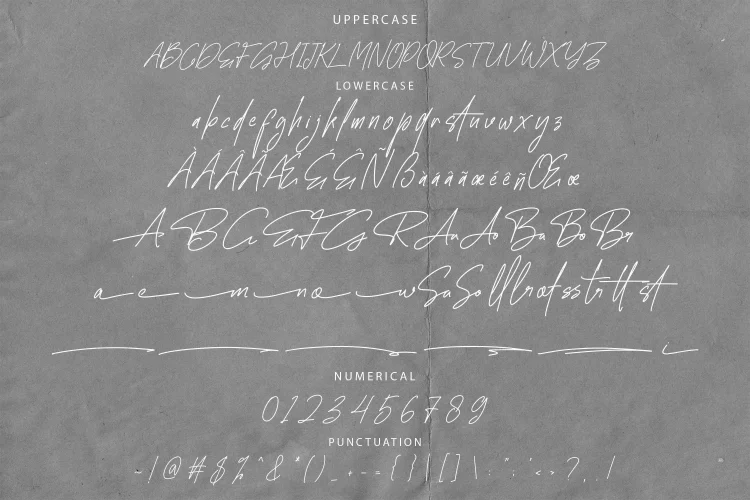 UPPERCASE
ABCDEFGHIJKLMNOPQRSTUVWXYZ
LOWERCASE
abcdefghijklmnopqrstuvwxyz
ÀÁÂÃÆÉÊÑßàáâãæéêñŒœ
A B C E F G R An As Ba Bo Br
a e m n o w Sa So ll lr ot ss tr tt st
NUMERICAL
0123456789
PUNCTUATION
~ ! @ # $ % ^ & * ( ) _ + - = { } | [ ] \ : " ; ' < > ? , . /